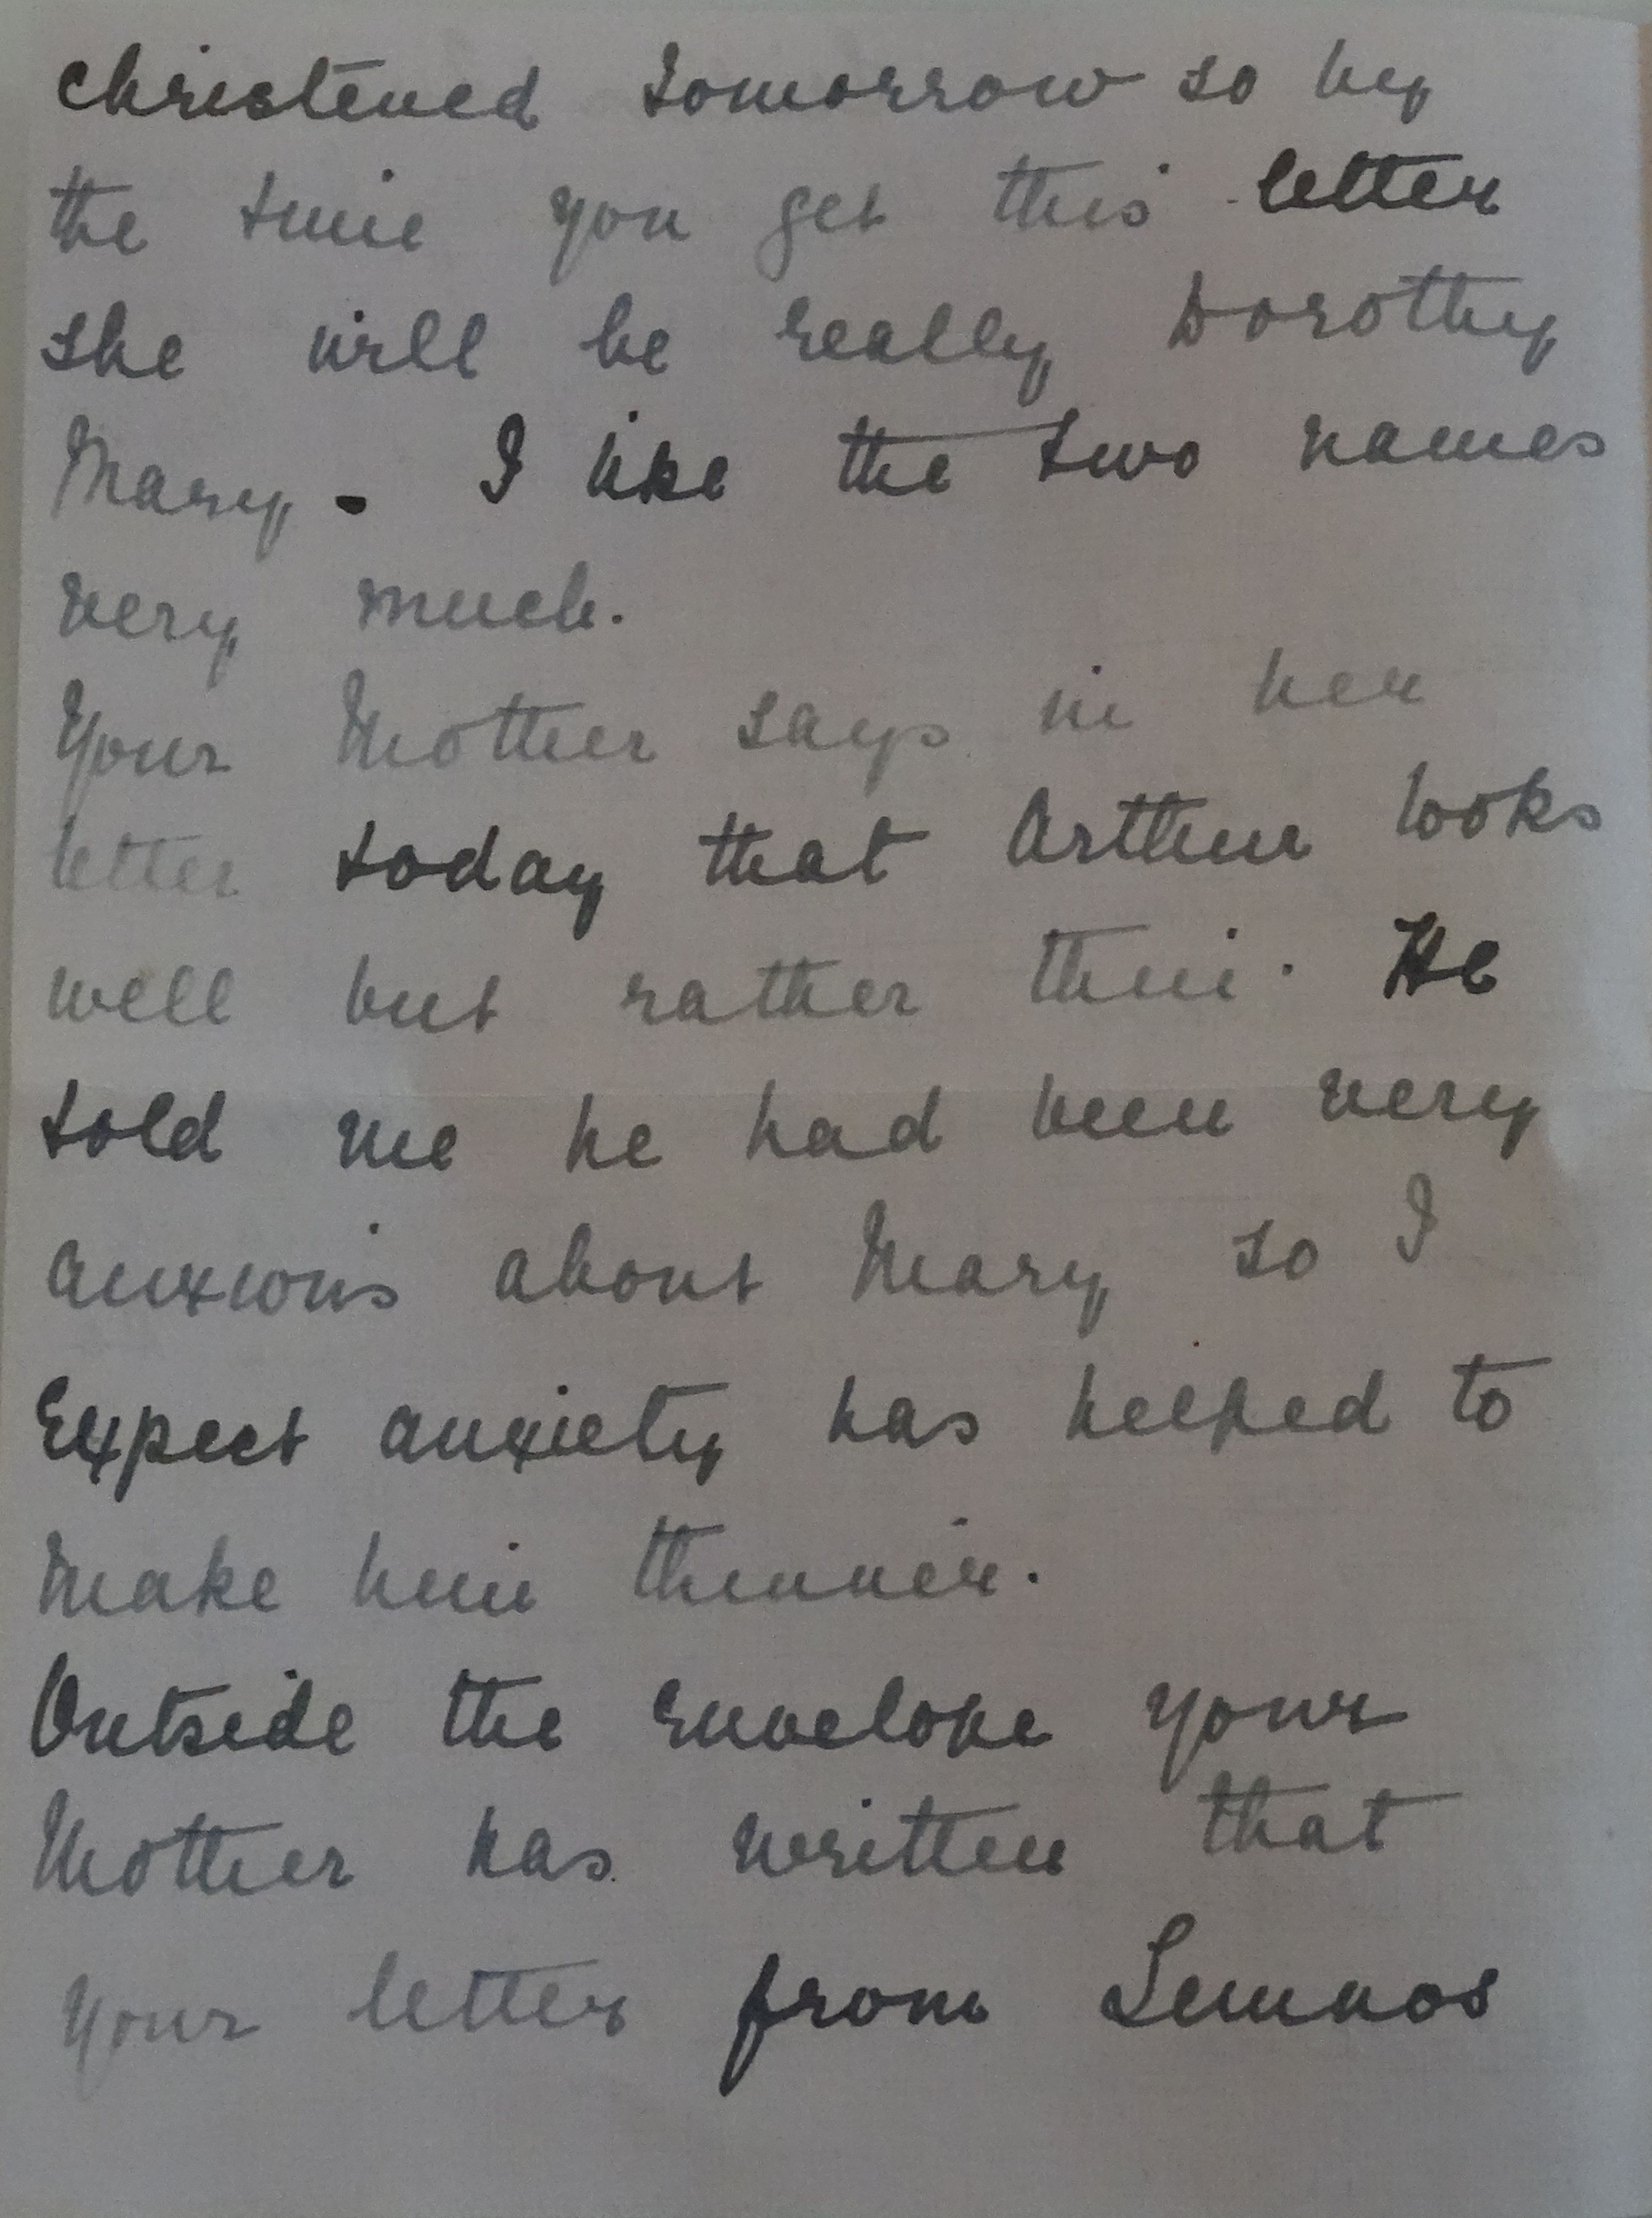 christened tomorrow so by
the time you get this letter
she will be really Dorothy
Mary - I like the two names
very much.
Your Mother says in her
letter today that Arthur looks
well but rather thin. He
told me he had been very
anxious about Mary so I
Expect anxiety has helped to
make him thinner.
Outside the Envelope your
Mother has written that
your letter from Lemnos